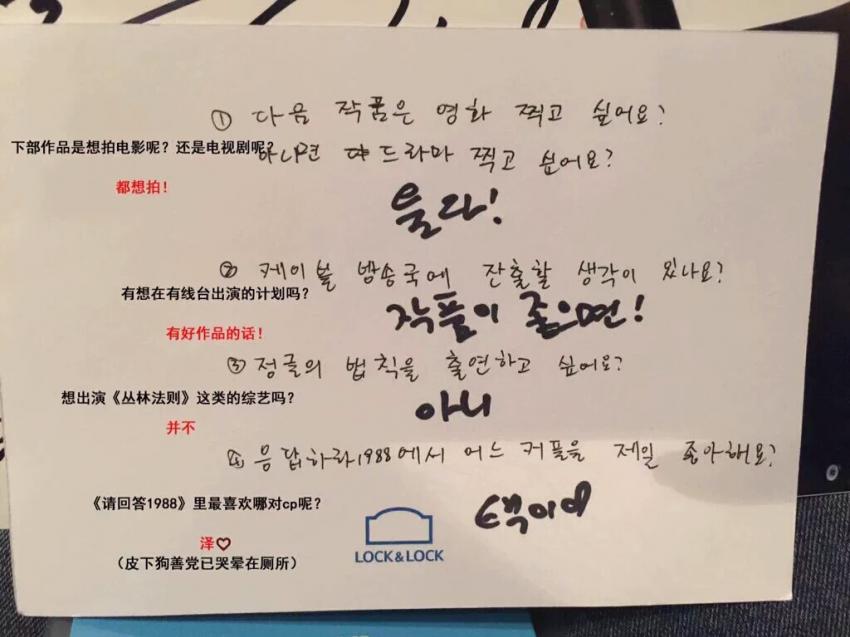 ① 다음 작품은 영화 찍고 싶어요?
下部作品是想拍电影呢？还是电视剧呢？
아니면 드라마 찍고 싶어요?
都想拍！
둘다!
② 케이블 방송국에 잔출할 생각이 있나요?
有想在有线台出演的计划吗？
작품이 좋으면!
有好作品的话！
③ 정글의 법칙을 출연하고 싶어요?
想出演《丛林法则》这类的综艺吗？
아니
并不
④ 응답하라1988에서 어느 커플을 제일 좋아해요?
《请回答1988》里最喜欢哪对cp呢？
택이
泽♡
（皮下狗善党已哭晕在厕所）
LOCK&LOCK